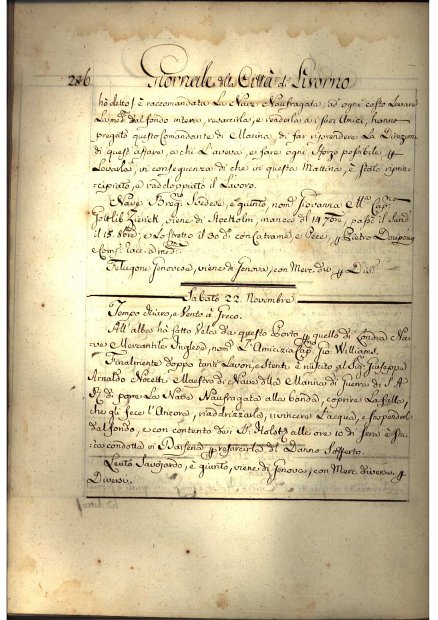 286 Giornale della Città di Livorno
hò detto è raccomandata La Nave Naufragata, ad ogni costo Levare
dal fondo intera, resarcirla, e renderla a i suoi Amici, hanno
pregato questo Comandante di Marina, di far riprendere La Direzione
di quest'affare, a chi L'aveva, e fare ogni sforzo possibile p
Levarla, in conseguenza di che in questa Mattina, è stato riprin-
cipiato, e raddoppiato il Lavoro.
Nave Svedese, è giunto, nom. Giovanna M.a Cap.no
Gottlib Ziervck viene di Stockolm, manca di 14 7bre, passò il Sund
il 15. 8bre, e Lo stretto il 30 d.o con Catrame, e Pece, p Pietro Dupouy
Comp. race. a med.mo
Felugone Genovese, viene di Genova, con Merc. div. p Div.i
Sabato 22. Novembre
Tempo chiaro, e Vento à Greco.
All'alba hà fatto Vela da questo Porto p quello di Londra Na-
ve Mercantile Inglese, nom. L'Amicizia Cap.no Gio: Williams.
Finalmente doppo tanti Lavori, e Stenti è riuscito al Sig. Giuseppe
Arnaldo Maestro di Nave della Marina di Guerra di S. A.
R. di porre La Nave Naufragata alla banda, coprire La falla,
che gli fece L'Ancora, raddrizzarla, vincere L'acqua, e sospenderla
dal fondo, e con contento de' alle ore 10 di sera è sta-
ta condotta in Darsena p resarcirla del Danno Sofferto.
Leuto Savojardo, è giunto, viene di Genova, con Merc. diverse p
Diversi.